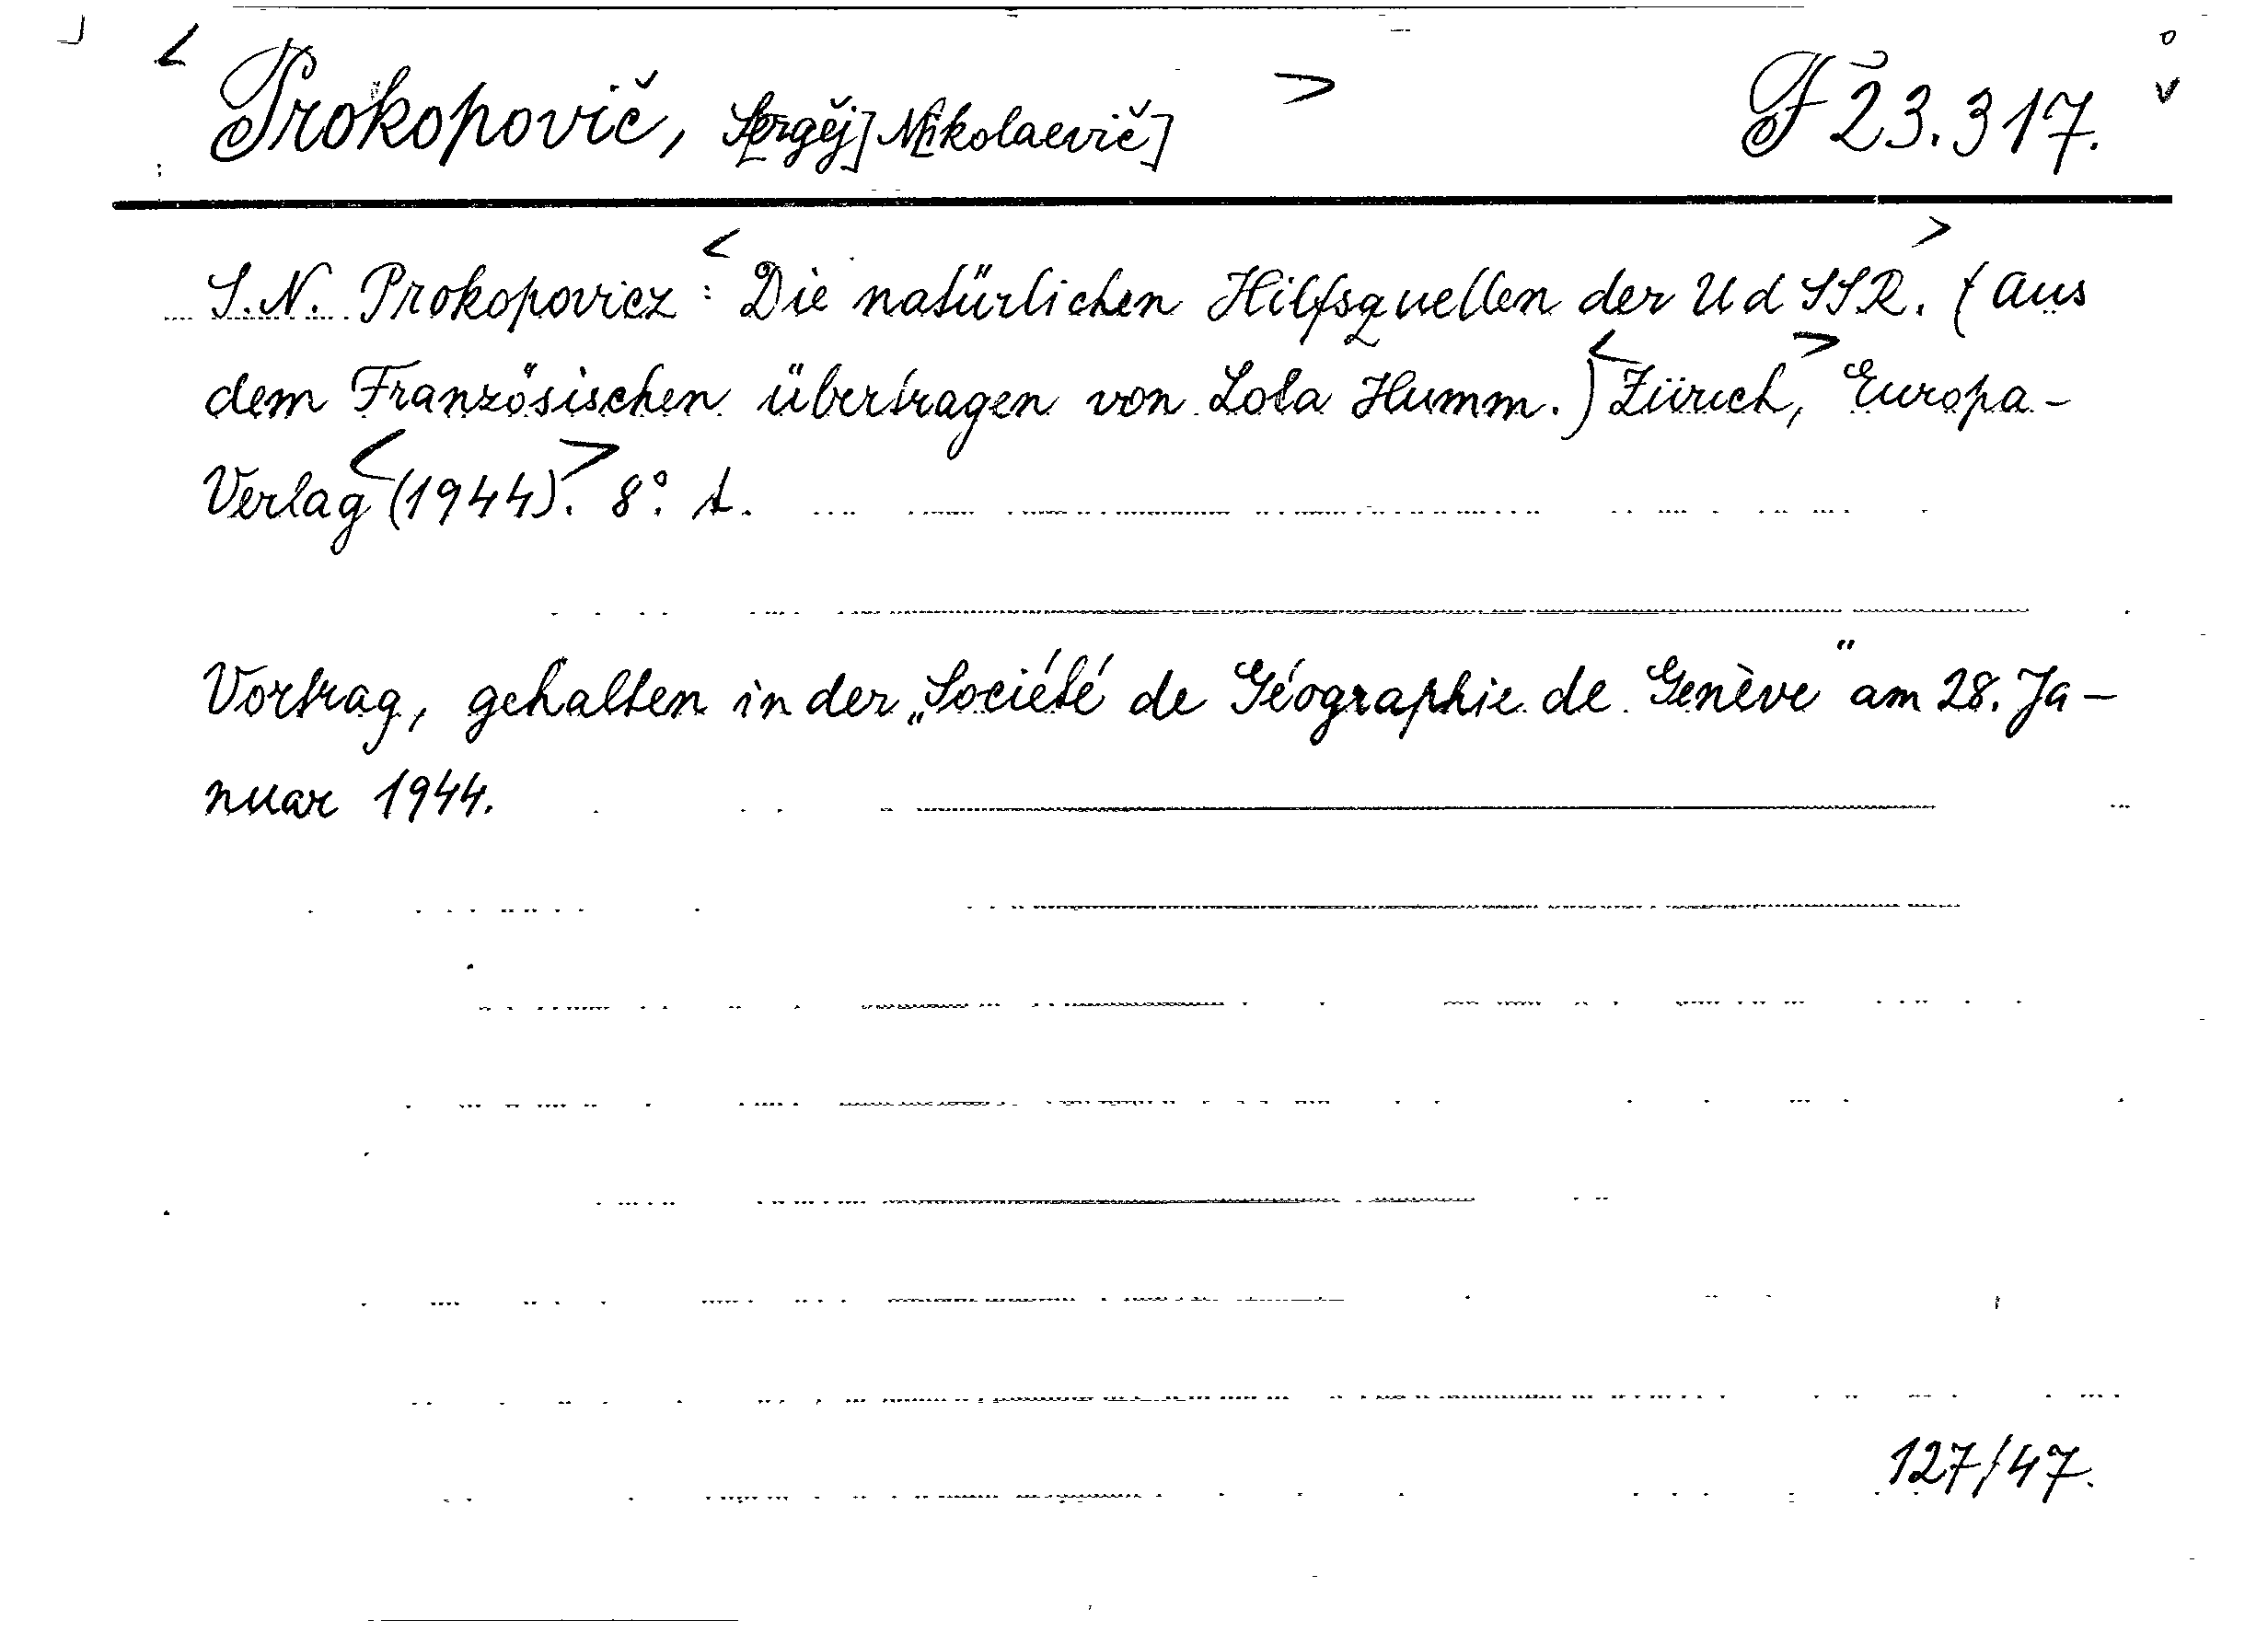 < Prokopovič, S[ergěj] N[ikolaevič] > F 23.317.
S.N. Prokopovicz: <Die natürlichen Hilfsquellen der UdSSR.> (Aus
dem Französischen übertragen von Lola Humm.) <Zürich,> Europa-
Verlag <(1944).> 8°. A.
Vortrag, gehalten in der „Société de Géographie de Genève“ am 28. Ja-
nuar 1944.
127/47.